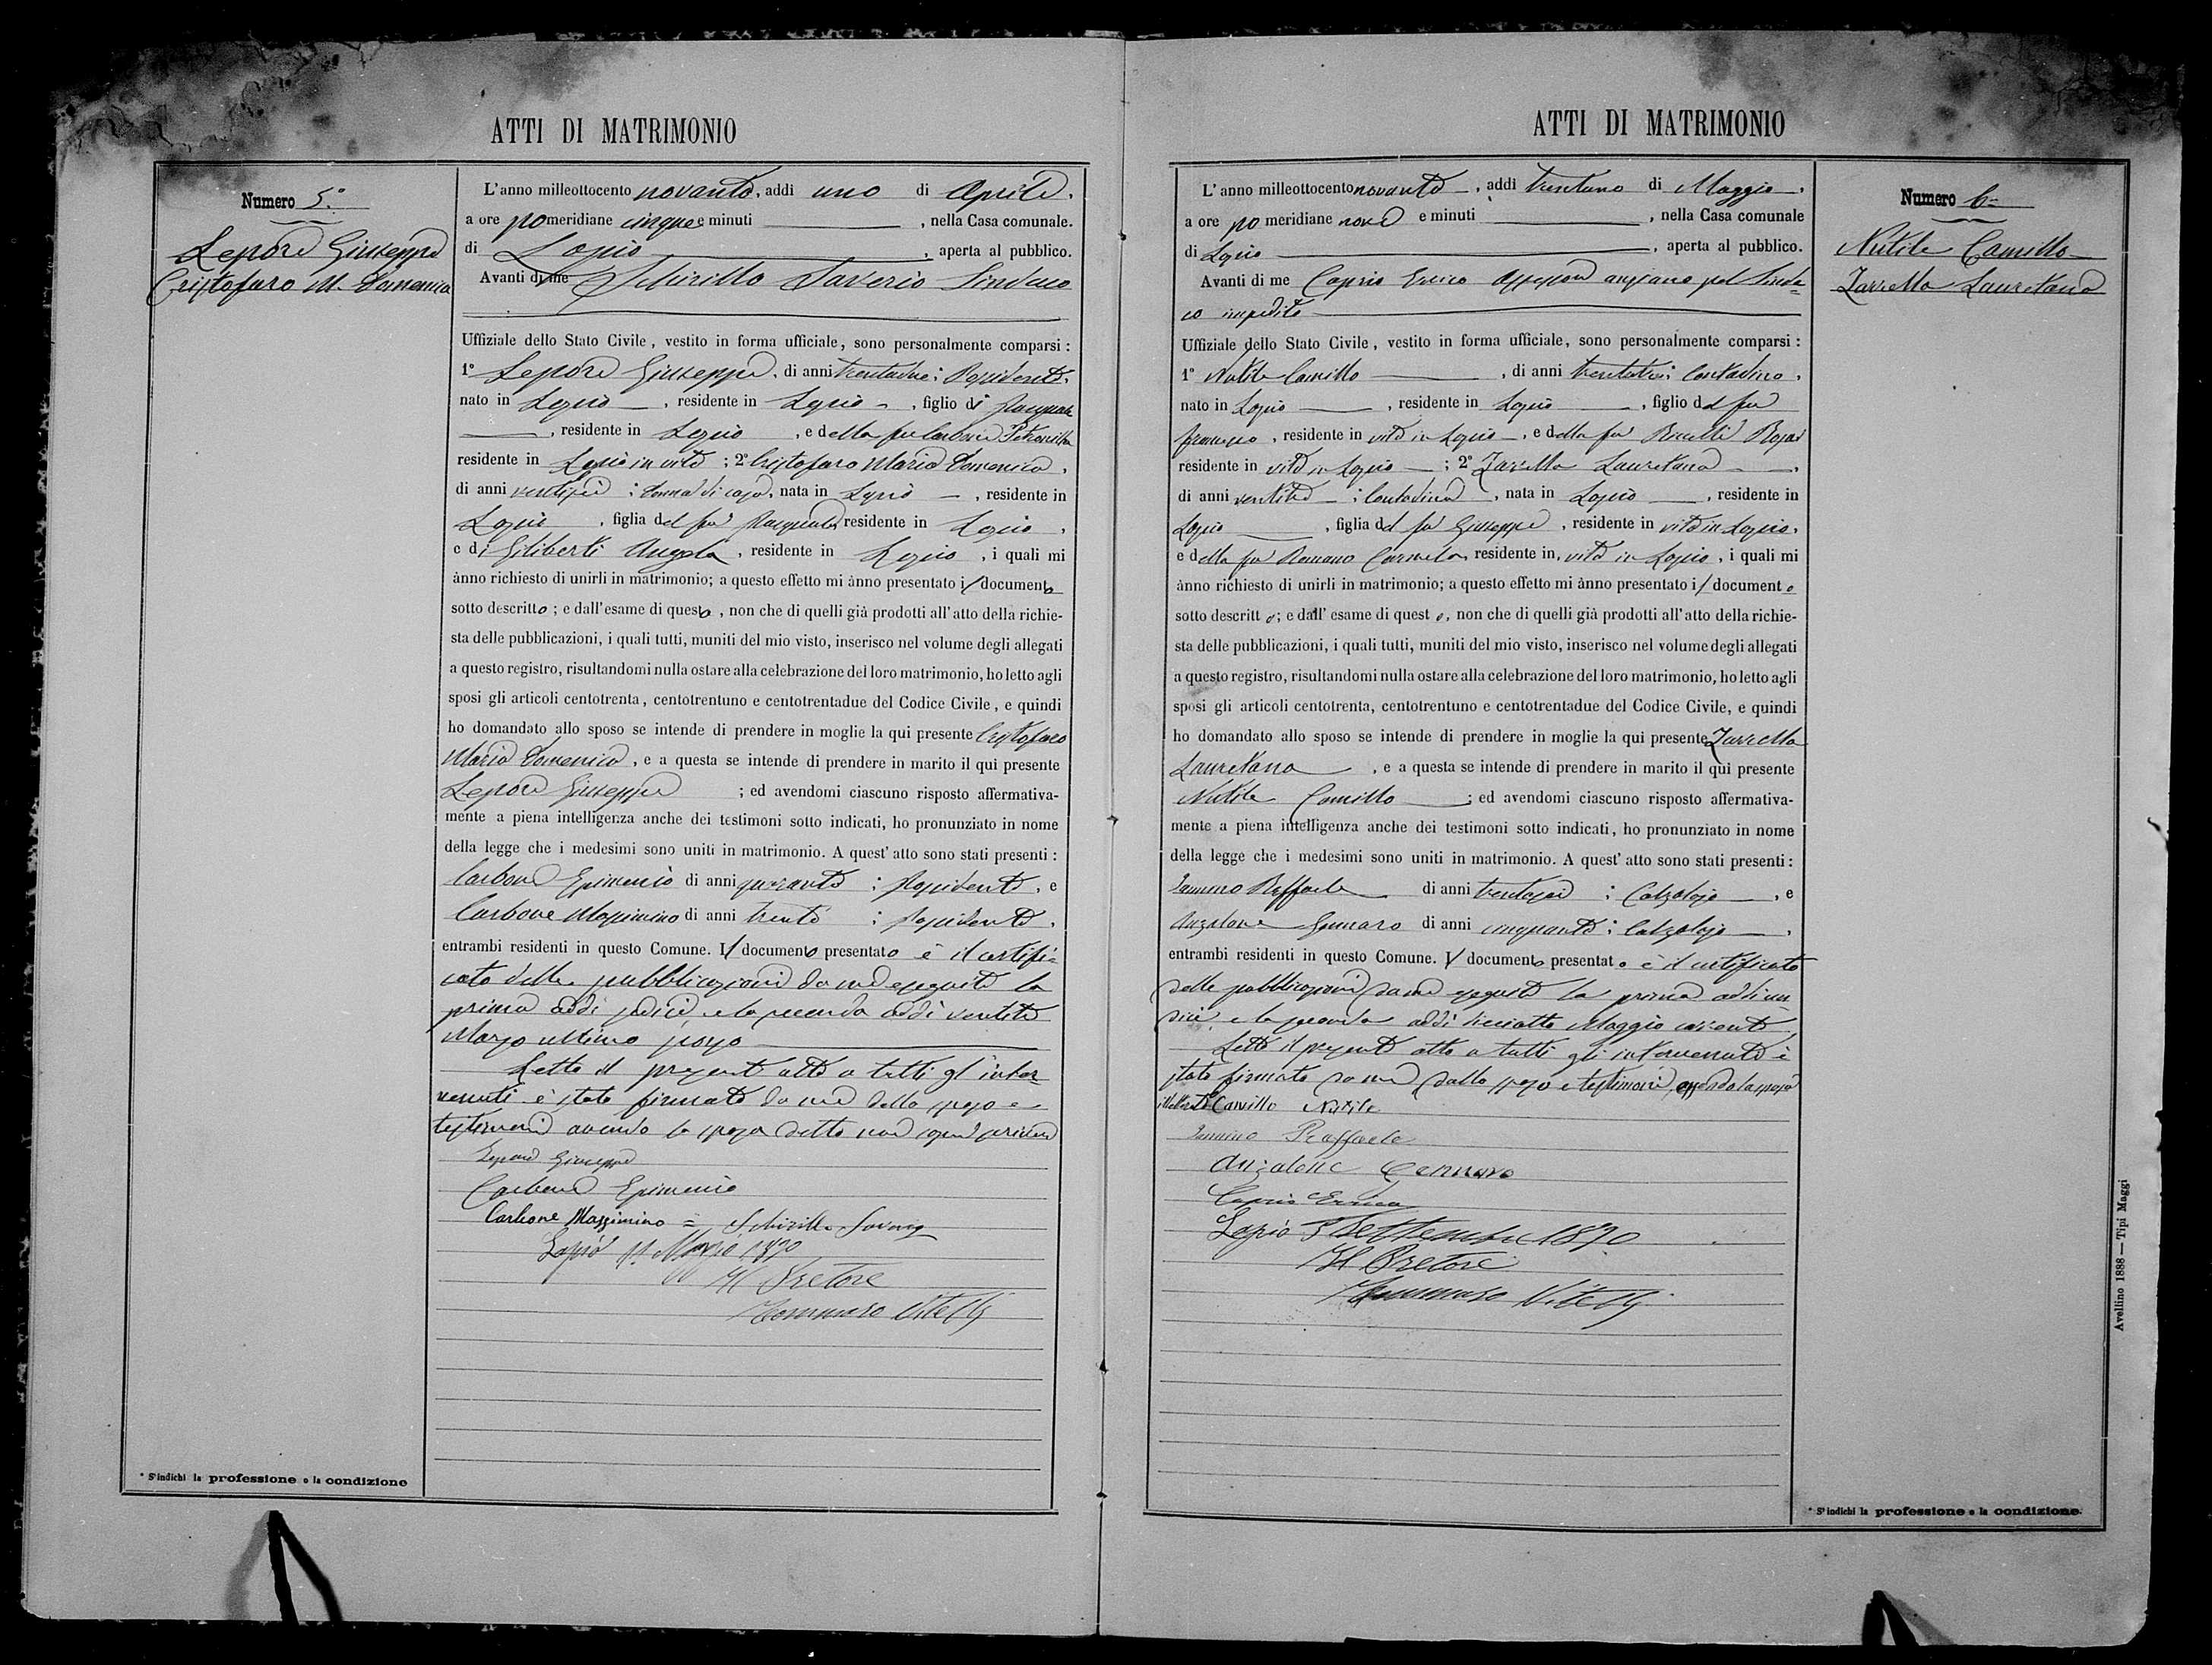 ATTI DI MATRIMONIO
Numero 5°
Lepore Giuseppe
Cristofaro M. Domenica
L'anno milleottocento novanta, addì uno di Aprile,
a ore pomeridiane cinque e minuti , nella Casa comunale.
di Lapio , aperta al pubblico.
Avanti di me Schirillo Saverio Sindaco
Uffiziale dello Stato Civile, vestito in forma ufficiale, sono personalmente comparsi:
1° Lepore Giuseppe, di anni trentadue; Possidente,
nato in Lapio, residente in Lapio, figlio di Pasquale
, residente in Lapio, e della fu Carbone Petronilla
residente in Lapio in vita; 2° Cristofaro Maria Domenica,
di anni ventisei; donna di casa, nata in Lapio, residente in
Lapio, figlia del fu Pasquale, residente in Lapio,
e di Giliberti Angela, residente in Lapio, i quali mi
ànno richiesto di unirli in matrimonio; a questo effetto mi ànno presentato il documento
sotto descritto; e dall'esame di questo, non che di quelli già prodotti all'atto della richie-
sta delle pubblicazioni, i quali tutti, muniti del mio visto, inserisco nel volume degli allegati
a questo registro, risultandomi nulla ostare alla celebrazione del loro matrimonio, ho letto agli
sposi gli articoli centotrenta, centotrentuno e centotrentadue del Codice Civile, e quindi
ho domandato allo sposo se intende di prendere in moglie la qui presente Cristofaro
Maria Domenica, e a questa se intende di prendere in marito il qui presente
Lepore Giuseppe ; ed avendomi ciascuno risposto affermativa-
mente a piena intelligenza anche dei testimoni sotto indicati, ho pronunziato in nome
della legge che i medesimi sono uniti in matrimonio. A quest'atto sono stati presenti:
Carbone Epimenio di anni quaranta; Possidente, e
Carbone Massimino di anni trenta; Possidente,
entrambi residenti in questo Comune. Il documento presentato è il certifi=
cato delle pubblicazioni da me eseguite la
prima addì sedici e la seconda addì ventitre
Marzo ultimo scorso
Letto il presente atto a tutti gl'inter
venuti è stato firmato da me dallo sposo e
testimoni avendo la sposa detto non sapere scrivere
Lepore Giuseppe
Carbone Epimenio
Carbone Massimino = Schirillo Saverio
Lapio 11 1890
Il Pretore
Tommaso Vitelli
* S'indichi la professione o la condizione
ATTI DI MATRIMONIO
Numero 6=
Nutile Camillo
Zarrella Lauretana
L'anno milleottocento novanta, addì trentuno di Maggio,
a ore pomeridiane nove e minuti , nella Casa comunale
di Lapio , aperta al pubblico.
Avanti di me Caprio Enrico Assessore anziano pel Sinda=
co impedito
Uffiziale dello Stato Civile, vestito in forma ufficiale, sono personalmente comparsi:
1° Nutile Camillo , di anni trentatre; Contadino,
nato in Lapio , residente in Lapio , figlio del fu
Francesco, residente in vita in Lapio, e della fu Rosa
residente in vita in Lapio; 2° Zarrella Lauretana ,
di anni ventitre; Contadina, nata in Lapio , residente in
Lapio , figlia del fu Giuseppe, residente in vita in Lapio,
e della fu Romano Carmela, residente in, vita in Lapio, i quali mi
ànno richiesto di unirli in matrimonio; a questo effetto mi ànno presentato il documento
sotto descritto; e dall'esame di questo, non che di quelli già prodotti all'atto della richie-
sta delle pubblicazioni, i quali tutti, muniti del mio visto, inserisco nel volume degli allegati
a questo registro, risultandomi nulla ostare alla celebrazione del loro matrimonio, ho letto agli
sposi gli articoli centotrenta, centotrentuno e centotrentadue del Codice Civile, e quindi
ho domandato allo sposo se intende di prendere in moglie la qui presente Zarrella
Lauretana , e a questa se intende di prendere in marito il qui presente
Nutile Camillo ; ed avendomi ciascuno risposto affermativa-
mente a piena intelligenza anche dei testimoni sotto indicati, ho pronunziato in nome
della legge che i medesimi sono uniti in matrimonio. A quest'atto sono stati presenti:
Raffaele di anni trentasei; Calzolajo , e
Anzalone Gennaro di anni cinquanta; Calzolajo ,
entrambi residenti in questo Comune. Il documento presentato è il certificato
delle pubblicazioni da me eseguite la prima addì un
dici e la seconda addì diciotto Maggio corrente
Letto il presente atto a tutti gli intervenuti è
stato firmato da me dallo sposo e testimoni, essendo la sposa
illetterata Camillo Nutile
Raffaele
Anzalone Gennaro
Caprio Enrico
Lapio 5 Settembre 1890
Il Pretore
Tommaso Vitelli
* S'indichi la professione o la condizione.
Avellino 1888 — Tipi Maggi